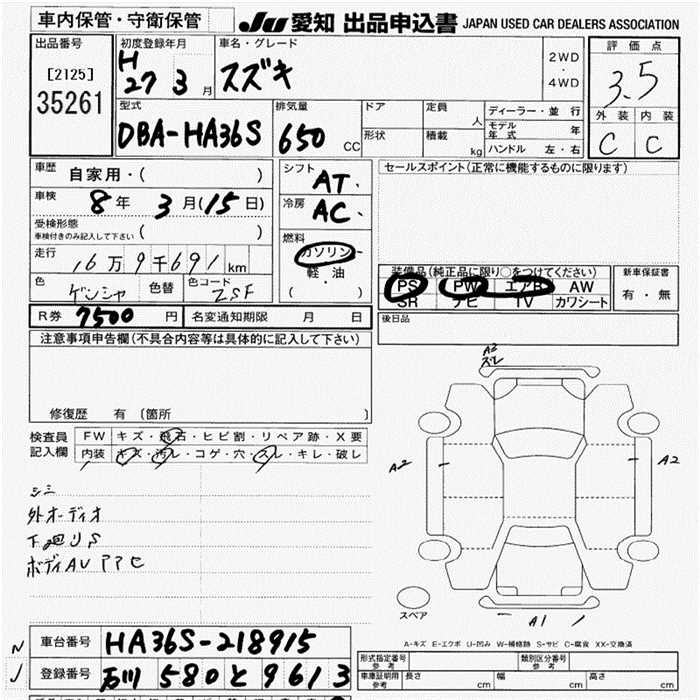 車内保管・守衛保管
JU 愛知 出品申込書 JAPAN USED CAR DEALERS ASSOCIATION
出品番号
[2125]
35261
初度登録年月
H
27 3 月
車名・グレード
スズキ
2WD
・
4WD
評価点
3.5
外装 内装
C C
型式
DBA-HA36S
排気量
650 CC
ドア
形状
定員 人
積載 kg
ディーラー・並行
モデル年式 年
ハンドル 左・右
車歴 自家用・( )
車検 8年 3月(15日)
受検形態
車検付きのみ記入して下さい ( )
走行 16万9千691km
色 ゲンシャ 色替 色コード ZSF
シフト AT.
冷房 AC.
燃料
ガソリン
軽油
・
( )
セールスポイント(正常に機能するものに限ります)
装備品(純正品に限り○をつけてください)
PS PW エアB AW
SR ナビ TV カワシート
新車保証書
有・無
R券 7500 円 名変通知期限 月 日
後日品
注意事項申告欄(不具合内容等は具体的に記入して下さい)
修復歴 有 〔箇所 〕
検査員記入欄
FW キズ・飛石・ヒビ割・リペア跡・X要
内装 キズ・汚レ・コゲ・穴・スレ・キレ・破レ
シミ
外オーディオ
下廻りS
ボディAU
A2
ズレ
A2
A2
スペア
A1
A-キズ E-エクボ U-凹み W-補修跡 S-サビ C-腐食 XX-交換済
N
J
車台番号 HA36S-218915
登録番号 石川 580 と 9613
形式指定番号
参考
類別区分番号
参考
車庫証明用
参考
長さ cm 幅 cm 高さ cm